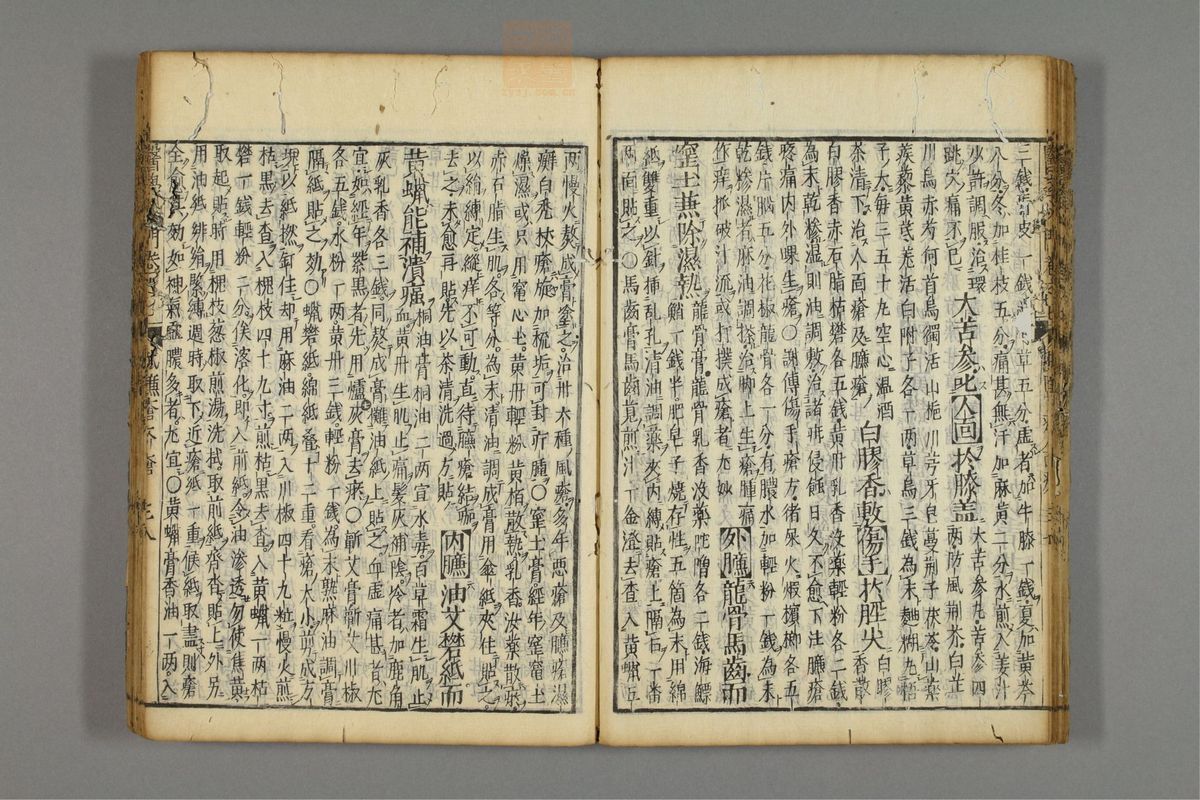 三錢青皮一錢 草五分虛者加牛膝一錢夏加黃芩
八分冬加桂枝五分痛甚無汗加麻黃二分水煎入姜汁
少許調服治環 大苦參此人面於膝蓋 大苦參丸苦參四
跳穴痛不已 兩防風荆芥白芷
川烏赤芍何首烏獨活山梔川芎牙皂蔓荆子茯苓山藥
蒺藜黃芪羗活白附子各一兩草烏三錢為末麯糊丸梧
子大每三五十丸空心溫酒 白膠香敷傷手於脛尖 白膠
茶清下治人面瘡及臁瘡 香散
白膠香赤石脂枯礬各五錢黃丹乳香沒藥輕粉各二錢
為末乾摻濕則油調敷治諸瘡侵蝕日久不愈下注臁瘡
疼痛內外踝生瘡○謝傳傷手瘡方猪屎火煆檳榔各五
錢片腦五分花椒龍骨各一分有膿水加輕粉一錢為末
乾摻濕者麻油調搽治脚上生瘡腫痛 外臁龍骨馬齒而
作痒抓破汁流或打撲成瘡者尤妙
窰土兼除濕熱 龍骨膏龍骨乳香沒藥陀僧各二錢海鰾
鮹一錢半肥皂子燒存性五箇為末用綿
紙雙重以針挿乱孔清油調藥夾內縛貼瘡上隔日一番
兩面貼之○馬齒膏馬齒莧煎汁一金澄去查入黃蠟五
兩慢火熬成膏塗之治卅六種風瘡多年惡瘡及臁瘡濕
癬白禿杖瘡旋加梳垢可封疔腫○窰土膏經年窰竈土
燥濕或只用竈心土黃丹輕粉黃栢散熱乳香沒藥散瘀
赤石脂生肌各等分為末清油調成膏用傘紙夾住貼之
以絹縛定縱痒不可動直待臁瘡結痂 內臁油艾礬紙而
去之未愈再貼先以茶清洗過方貼
黃蠟能補潰瘍 桐油膏桐油二兩宣水毒百草霜生肌止
血黃丹生肌止痛髮灰補陰冷者加鹿角
灰乳香各三錢同熬成膏攤油紙上貼之血虛痛甚者尤
宜如經年紫黑者先用爐灰膏去瘀○蘄艾膏蘄艾川椒
各五錢水粉一兩黃丹三錢輕粉一錢為末熟麻油調膏
隔紙貼之効○蠟礬紙綿紙疊十二重看瘡大小剪成方
塊以紙撚釘住却用麻油二兩入川椒四十九粒慢火煎
枯黑去查入槐枝四十九寸煎枯黑去查入黃蠟一兩枯
礬一錢輕粉二分俟溶化即入前紙令油滲透勿使焦黃
取起貼時用槐枝葱椒煎湯洗拭取前紙齊沓貼上外另
用油紙緋絹緊縛週時取下近瘡紙一重候紙取盡則瘡
全愈其効如神氣虛膿多者尤宜○黃蠟膏香油一兩入